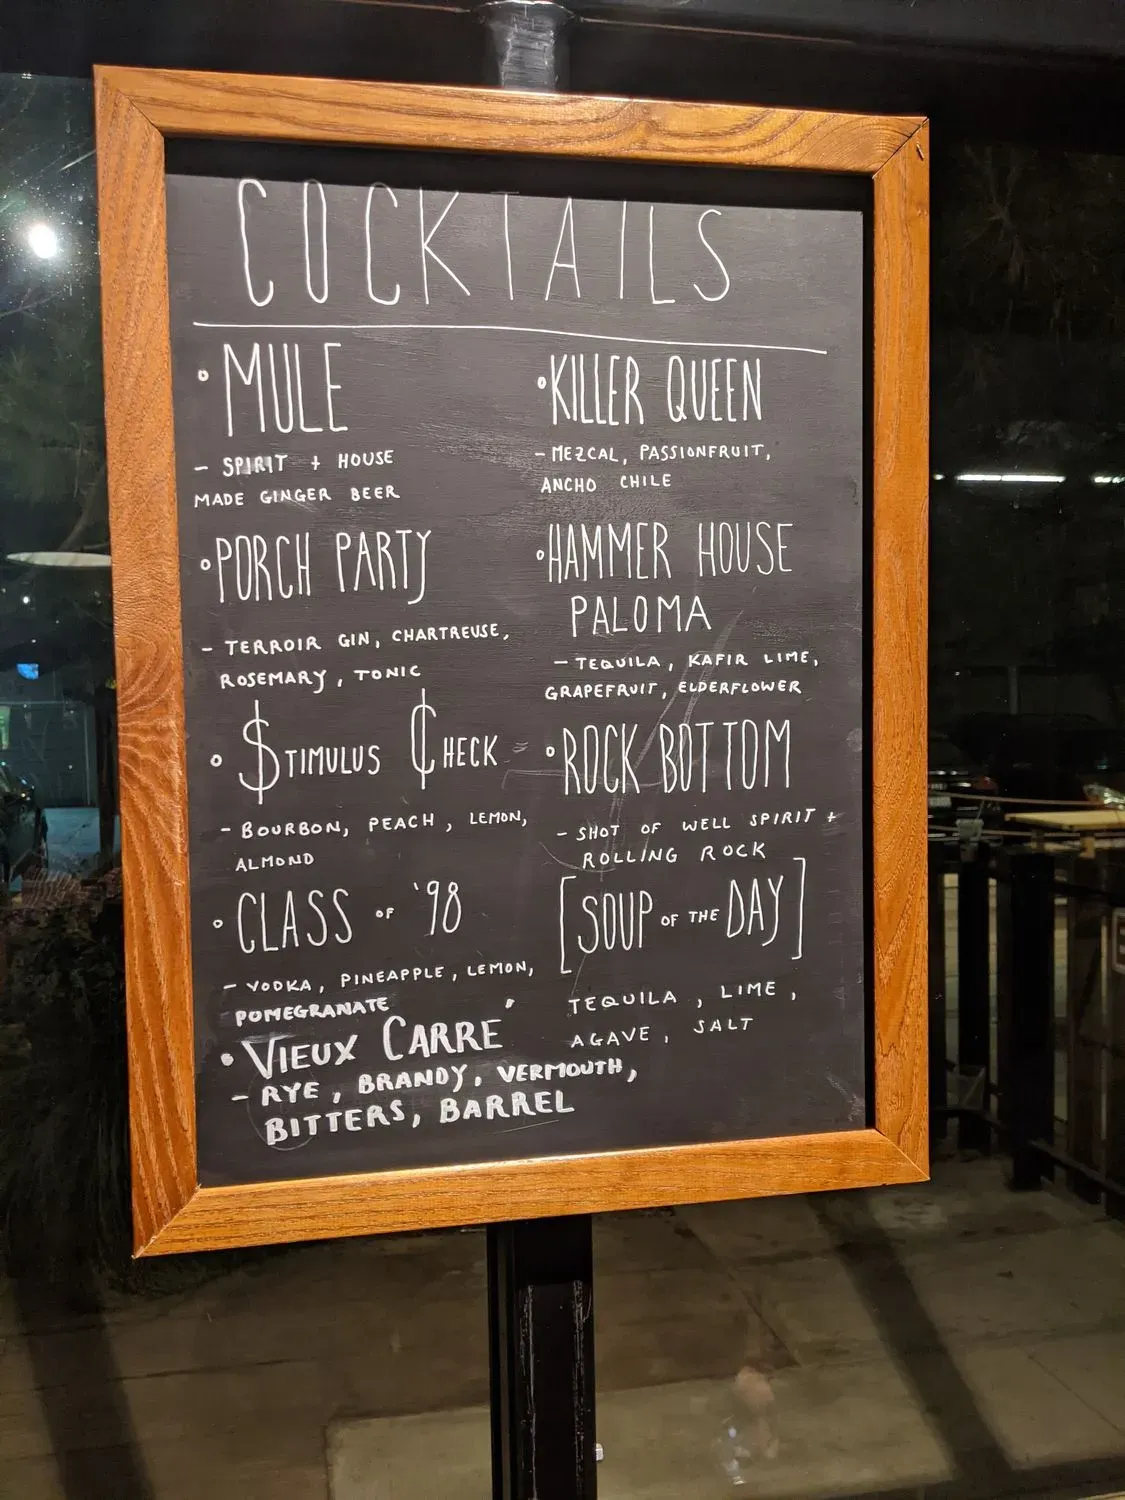 COCKTAILS
• MULE
- SPIRIT + HOUSE
MADE GINGER BEER
• PORCH PARTY
- TERROIR GIN, CHARTREUSE,
ROSEMARY, TONIC
• $TIMULUS ₵HECK
- BOURBON, PEACH, LEMON,
ALMOND
• CLASS OF '98
- VODKA, PINEAPPLE, LEMON,
POMEGRANATE
• VIEUX CARRE
- RYE, BRANDY, VERMOUTH,
BITTERS, BARREL
• KILLER QUEEN
- MEZCAL, PASSIONFRUIT,
ANCHO CHILE
• HAMMER HOUSE
PALOMA
- TEQUILA, KAFIR LIME,
GRAPEFRUIT, ELDERFLOWER
• ROCK BOTTOM
- SHOT OF WELL SPIRIT +
ROLLING ROCK
[SOUP OF THE DAY]
TEQUILA, LIME,
AGAVE, SALT